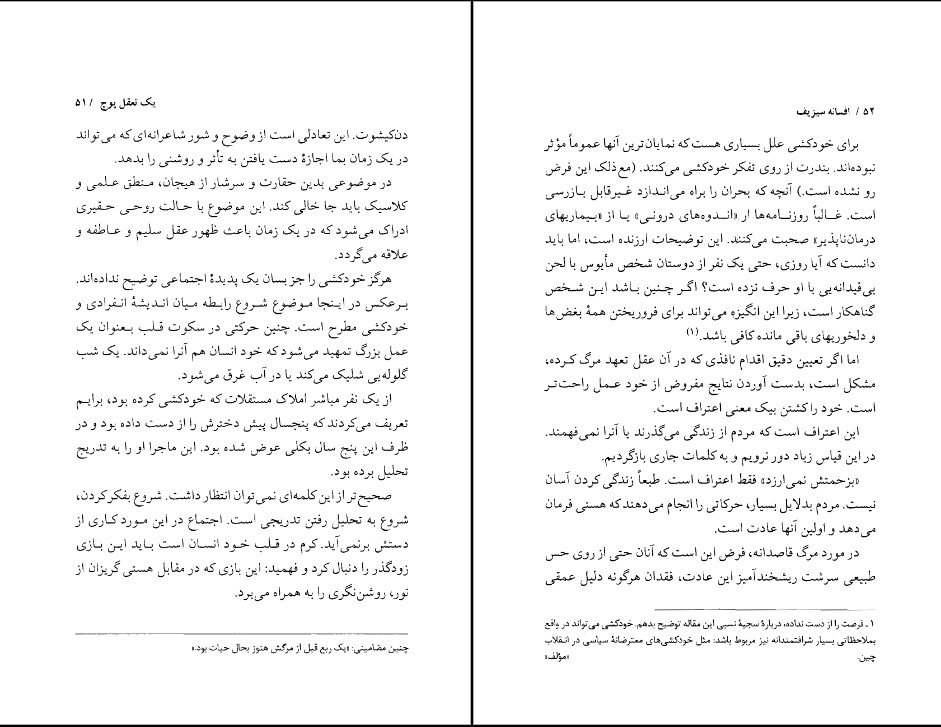 یک تعقل پوچ / ۵۱
دن‌کیشوت. این تعادلی است از وضوح و شور شاعرانه‌ای که می‌تواند
در یک زمان بما اجازهٔ دست یافتن به تأثر و روشنی را بدهد.
در موضوعی بدین حقارت و سرشار از هیجان، منطق علمی و
کلاسیک باید جا خالی کند. این موضوع با حالت روحی حقیری
ادراک می‌شود که در یک زمان باعث ظهور عقل سلیم و عاطفه و
علاقه می‌گردد.
هرگز خودکشی را جز بسان یک پدیدهٔ اجتماعی توضیح نداده‌اند.
برعکس در اینجا موضوع شروع رابطه میان اندیشهٔ انفرادی و
خودکشی مطرح است. چنین حرکتی در سکوت قلب بعنوان یک
عمل بزرگ تمهید می‌شود که خود انسان هم آنرا نمی‌داند. یک شب
گلوله‌یی شلیک می‌کند یا در آب غرق می‌شود.
از یک نفر مباشر املاک مستقلات که خودکشی کرده بود، برایم
تعریف می‌کردند که پنجسال پیش دخترش را از دست داده بود و در
ظرف این پنج سال بکلی عوض شده بود. این ماجرا او را به تدریج
تحلیل برده بود.
صحیح‌تر از این کلمه‌ای نمی‌توان انتظار داشت. شروع بفکر کردن،
شروع به تحلیل رفتن تدریجی است. اجتماع در این مورد کاری از
دستش برنمی‌آید. کرم در قلب خود انسان است باید این بازی
زودگذر را دنبال کرد و فهمید: این بازی که در مقابل هستی گریزان از
نور، روشن‌نگری را به همراه می‌برد.
چنین مضامینی: «یک ربع قبل از مرگش هنوز بحال حیات بود.»
۵۲ / افسانه سیزیف
برای خودکشی علل بسیاری هست که نمایان‌ترین آنها عموماً مؤثر
نبوده‌اند. بندرت از روی تفکر خودکشی می‌کنند. (مع‌ذلک این فرض
رو نشده است.) آنچه که بحران را براه می‌اندازد غیرقابل بازرسی
است. غالباً روزنامه‌ها از «اندوه‌های درونی» یا از «بیماریهای
درمان‌ناپذیر» صحبت می‌کنند. این توضیحات ارزنده است، اما باید
دانست که آیا روزی، حتی یک نفر از دوستان شخص مأیوس با لحن
بی‌قیدانه‌یی با او حرف نزده است؟ اگر چنین باشد این شخص
گناهکار است، زیرا این انگیزه می‌تواند برای فروریختن همهٔ بغض‌ها
و دلخوریهای باقی مانده کافی باشد.(۱)
اما اگر تعیین دقیق اقدام نافذی که در آن عقل تعهد مرگ کرده،
مشکل است، بدست آوردن نتایج مفروض از خود عمل راحت‌تر
است. خود را کشتن بیک معنی اعتراف است.
این اعتراف است که مردم از زندگی می‌گذرند یا آنرا نمی‌فهمند.
در این قیاس زیاد دور نرویم و به کلمات جاری بازگردیم.
«بزحمتش نمی‌ارزد» فقط اعتراف است. طبعاً زندگی کردن آسان
نیست. مردم بدلایل بسیار، حرکاتی را انجام می‌دهند که هستی فرمان
می‌دهد و اولین آنها عادت است.
در مورد مرگ قاصدانه، فرض این است که آنان حتی از روی حس
طبیعی سرشت ریشخندآمیز این عادت، فقدان هرگونه دلیل عمقی
۱ ـ فرصت را از دست نداده، دربارهٔ سجیهٔ نسبی این مقاله توضیح بدهم. خودکشی می‌تواند در واقع
بملاحظاتی بسیار شرافتمندانه نیز مربوط باشد: مثل خودکشی‌های معترضانهٔ سیاسی در انقلاب
چین. «مؤلف»